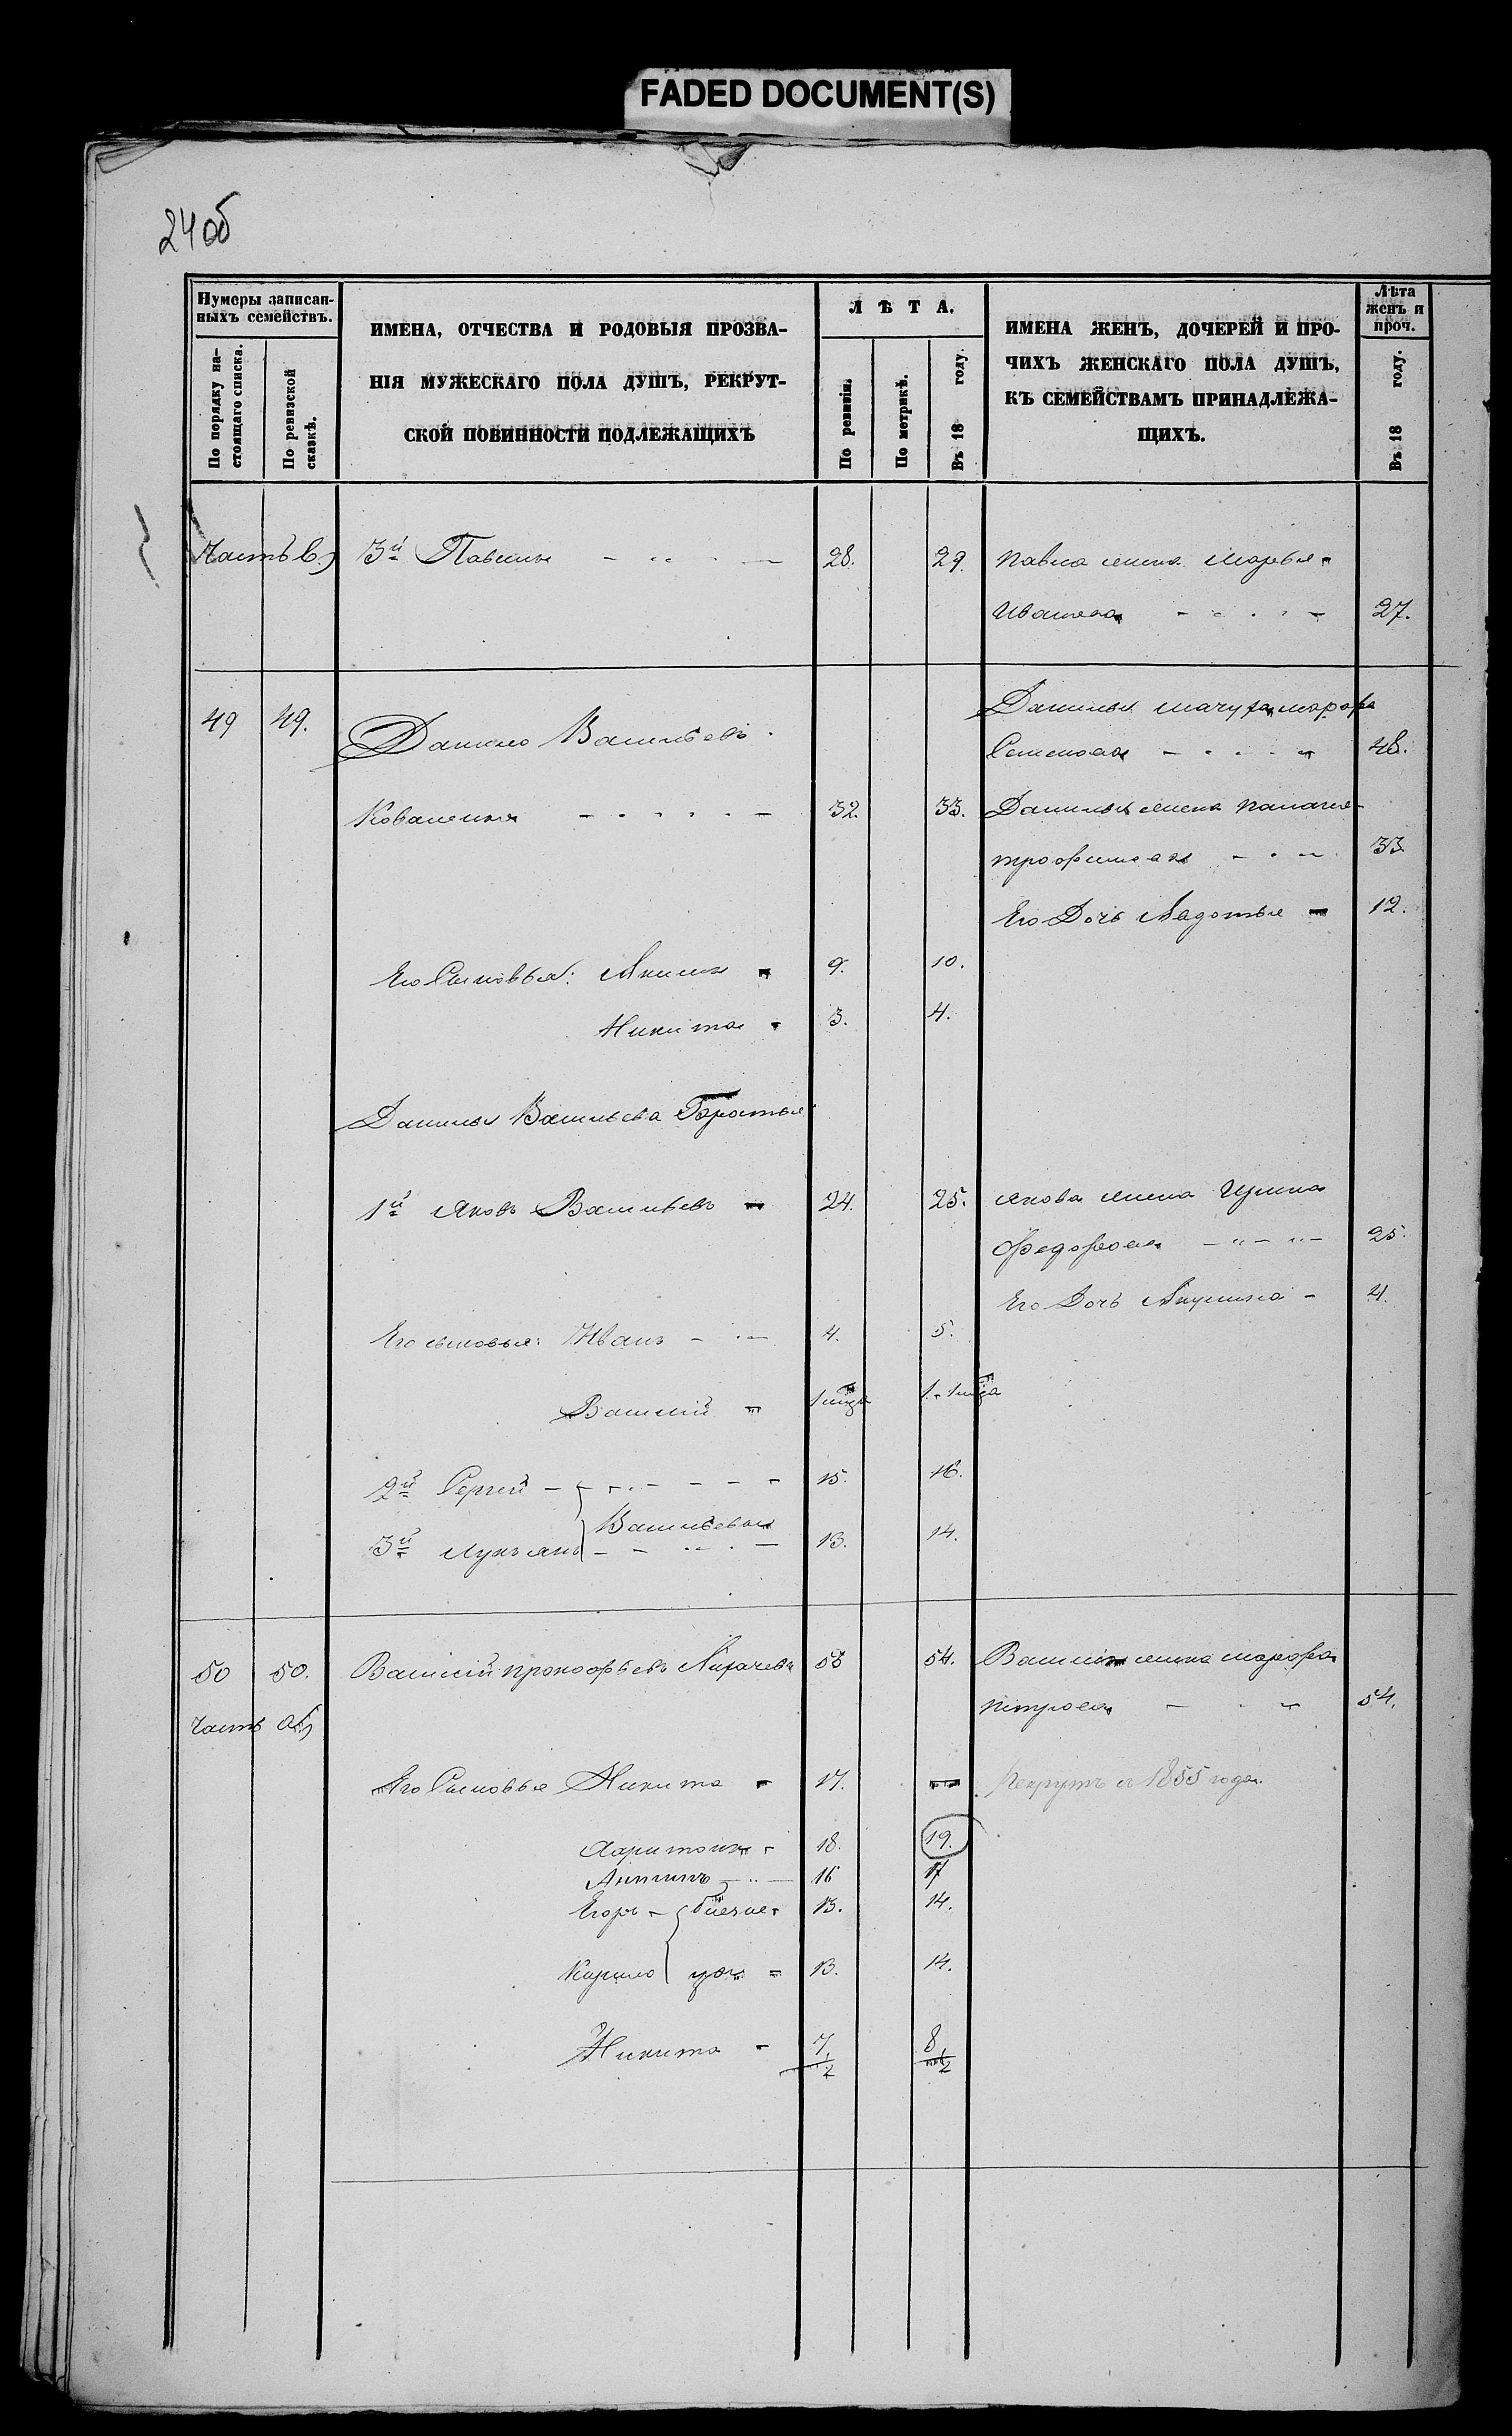 FADED DOCUMENT(S)
24 об
Нумеры записан-
ныхъ семействъ.
По порядку на-
стоящаго списка.
По ревизской
сказкѣ.
ИМЕНА, ОТЧЕСТВА И РОДОВЫЯ ПРОЗВА-
НІЯ МУЖЕСКАГО ПОЛА ДУШЪ, РЕКРУТ-
СКОЙ ПОВИННОСТИ ПОДЛЕЖАЩИХЪ
ЛѢТА.
По ревизіи.
По метрикѣ.
Въ 18 году.
ИМЕНА ЖЕНЪ, ДОЧЕРЕЙ И ПРО-
ЧИХЪ ЖЕНСКАГО ПОЛА ДУШЪ,
КЪ СЕМЕЙСТВАМЪ ПРИНАДЛЕЖА-
ЩИХЪ.
Лѣта
женъ и
проч.
Въ 18 году.
Часть в.) 3й Павелъ 28. 29. Павла жена Марья
Иванова 27.
49 49. Данило Васильевъ Данилы мачуха Марфа
Семенова 48.
Коваленко 32. 33. Данилы жена Палагея
Трофимова 33
Его Дочь Авдотья 12.
Его Сыновья: Акимъ 9. 10.
Никита 3. 4.
Данилы Васильева Братья
1й Яковъ Васильевъ 24. 25. Якова жена Ирина
Федорова 25.
Его Дочь Акулина 4.
Его сыновья: Иванъ 4. 5.
Василій 1 мца 1. 1 мца
2й Сергей 15. 16.
Васильевы
3й Лукьянъ 13. 14.
50 50. Василій Прокофьевъ 53 54. Василія жена Марфа
Петрова 54.
Часть а.)
Его Сыновья Никита 17. Рекрутъ 1855 года.
Харитонъ 18. 19.
Антипъ 16 17
Егоръ близне- 13. 14.
Кирило цы 13. 14.
Никита 7 1/2 8 1/2